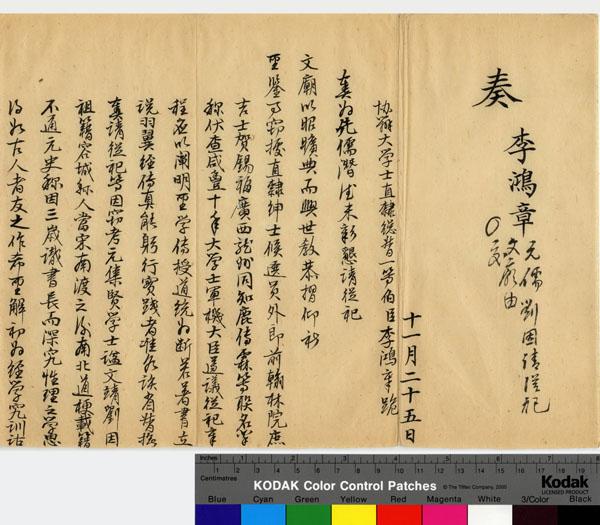 奏
李鴻章
元儒劉因請從祀
文廟由
十一月二十五日
協辦大學士直隸總督一等伯臣李鴻章跪
奏為先儒潛德未彰懇請從祀
文廟以昭曠典而興世教恭摺仰祈
聖鑒事竊據直隸紳士候選員外郎前翰林院庶
吉士賀錫福廣西龍州同知鹿傳霖等聯名呈
稱伏查咸豐十年大學士軍機大臣遵議從祀章
程應以闡明聖學傳授道統為斷若著書立
說羽翼經傳真能躬行實踐者准各該省督撫
奏請從祀等因竊考元集賢學士諡文靖劉因
祖籍容城縣人當宋南渡之後南北道梗載籍
不通元史稱因三歲識書長而深究性理之學思
得如古人者友之作希聖解初為經學究訓詁
Inches
Centimetres
KODAK Color Control Patches
© The Tiffen Company, 2000
Kodak
LICENSED PRODUCT
Blue Cyan Green Yellow Red Magenta White 3/Color Black